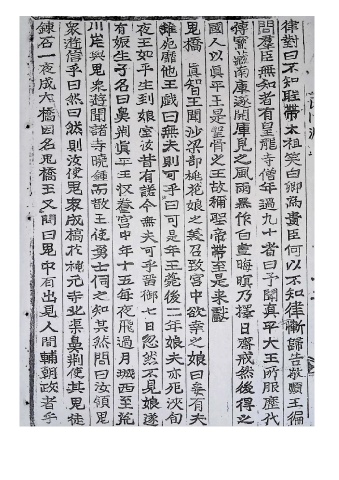 律對曰不知聖帶太祖笑曰卿爲貴臣何以不知律慚歸告敬順王徧
問羣臣無知者有皇龍寺僧年過九十者曰予聞眞平大王所服歷代
傳寶藏南庫遂開庫見之風雨暴作白晝晦暝乃擇日齋戒然後得之
國人以眞平王爲聖骨之王故稱聖帝帶至是來獻
鬼橋 眞智王聞沙梁部桃花娘之美召致宮中欲幸之娘曰妾有夫
雖死靡他王戱曰無夫則可乎曰可是年王薨後二年娘夫亦死浹旬
夜王如平生到娘室汝昔有諾今無夫可乎留御七日忽然不見娘遂
有娠生子名曰鼻荊眞平王收養宮中年十五每夜飛過月城西至荒
川岸與鬼衆遊聞諸寺曉鍾而散王使勇士伺之知其然問曰汝領鬼
衆遊信乎曰然曰然則汝使鬼衆成橋於神元寺北渠鼻荊使其鬼徒
鍊石一夜成大橋因名鬼橋王又問曰鬼中有出見人間輔朝政者乎